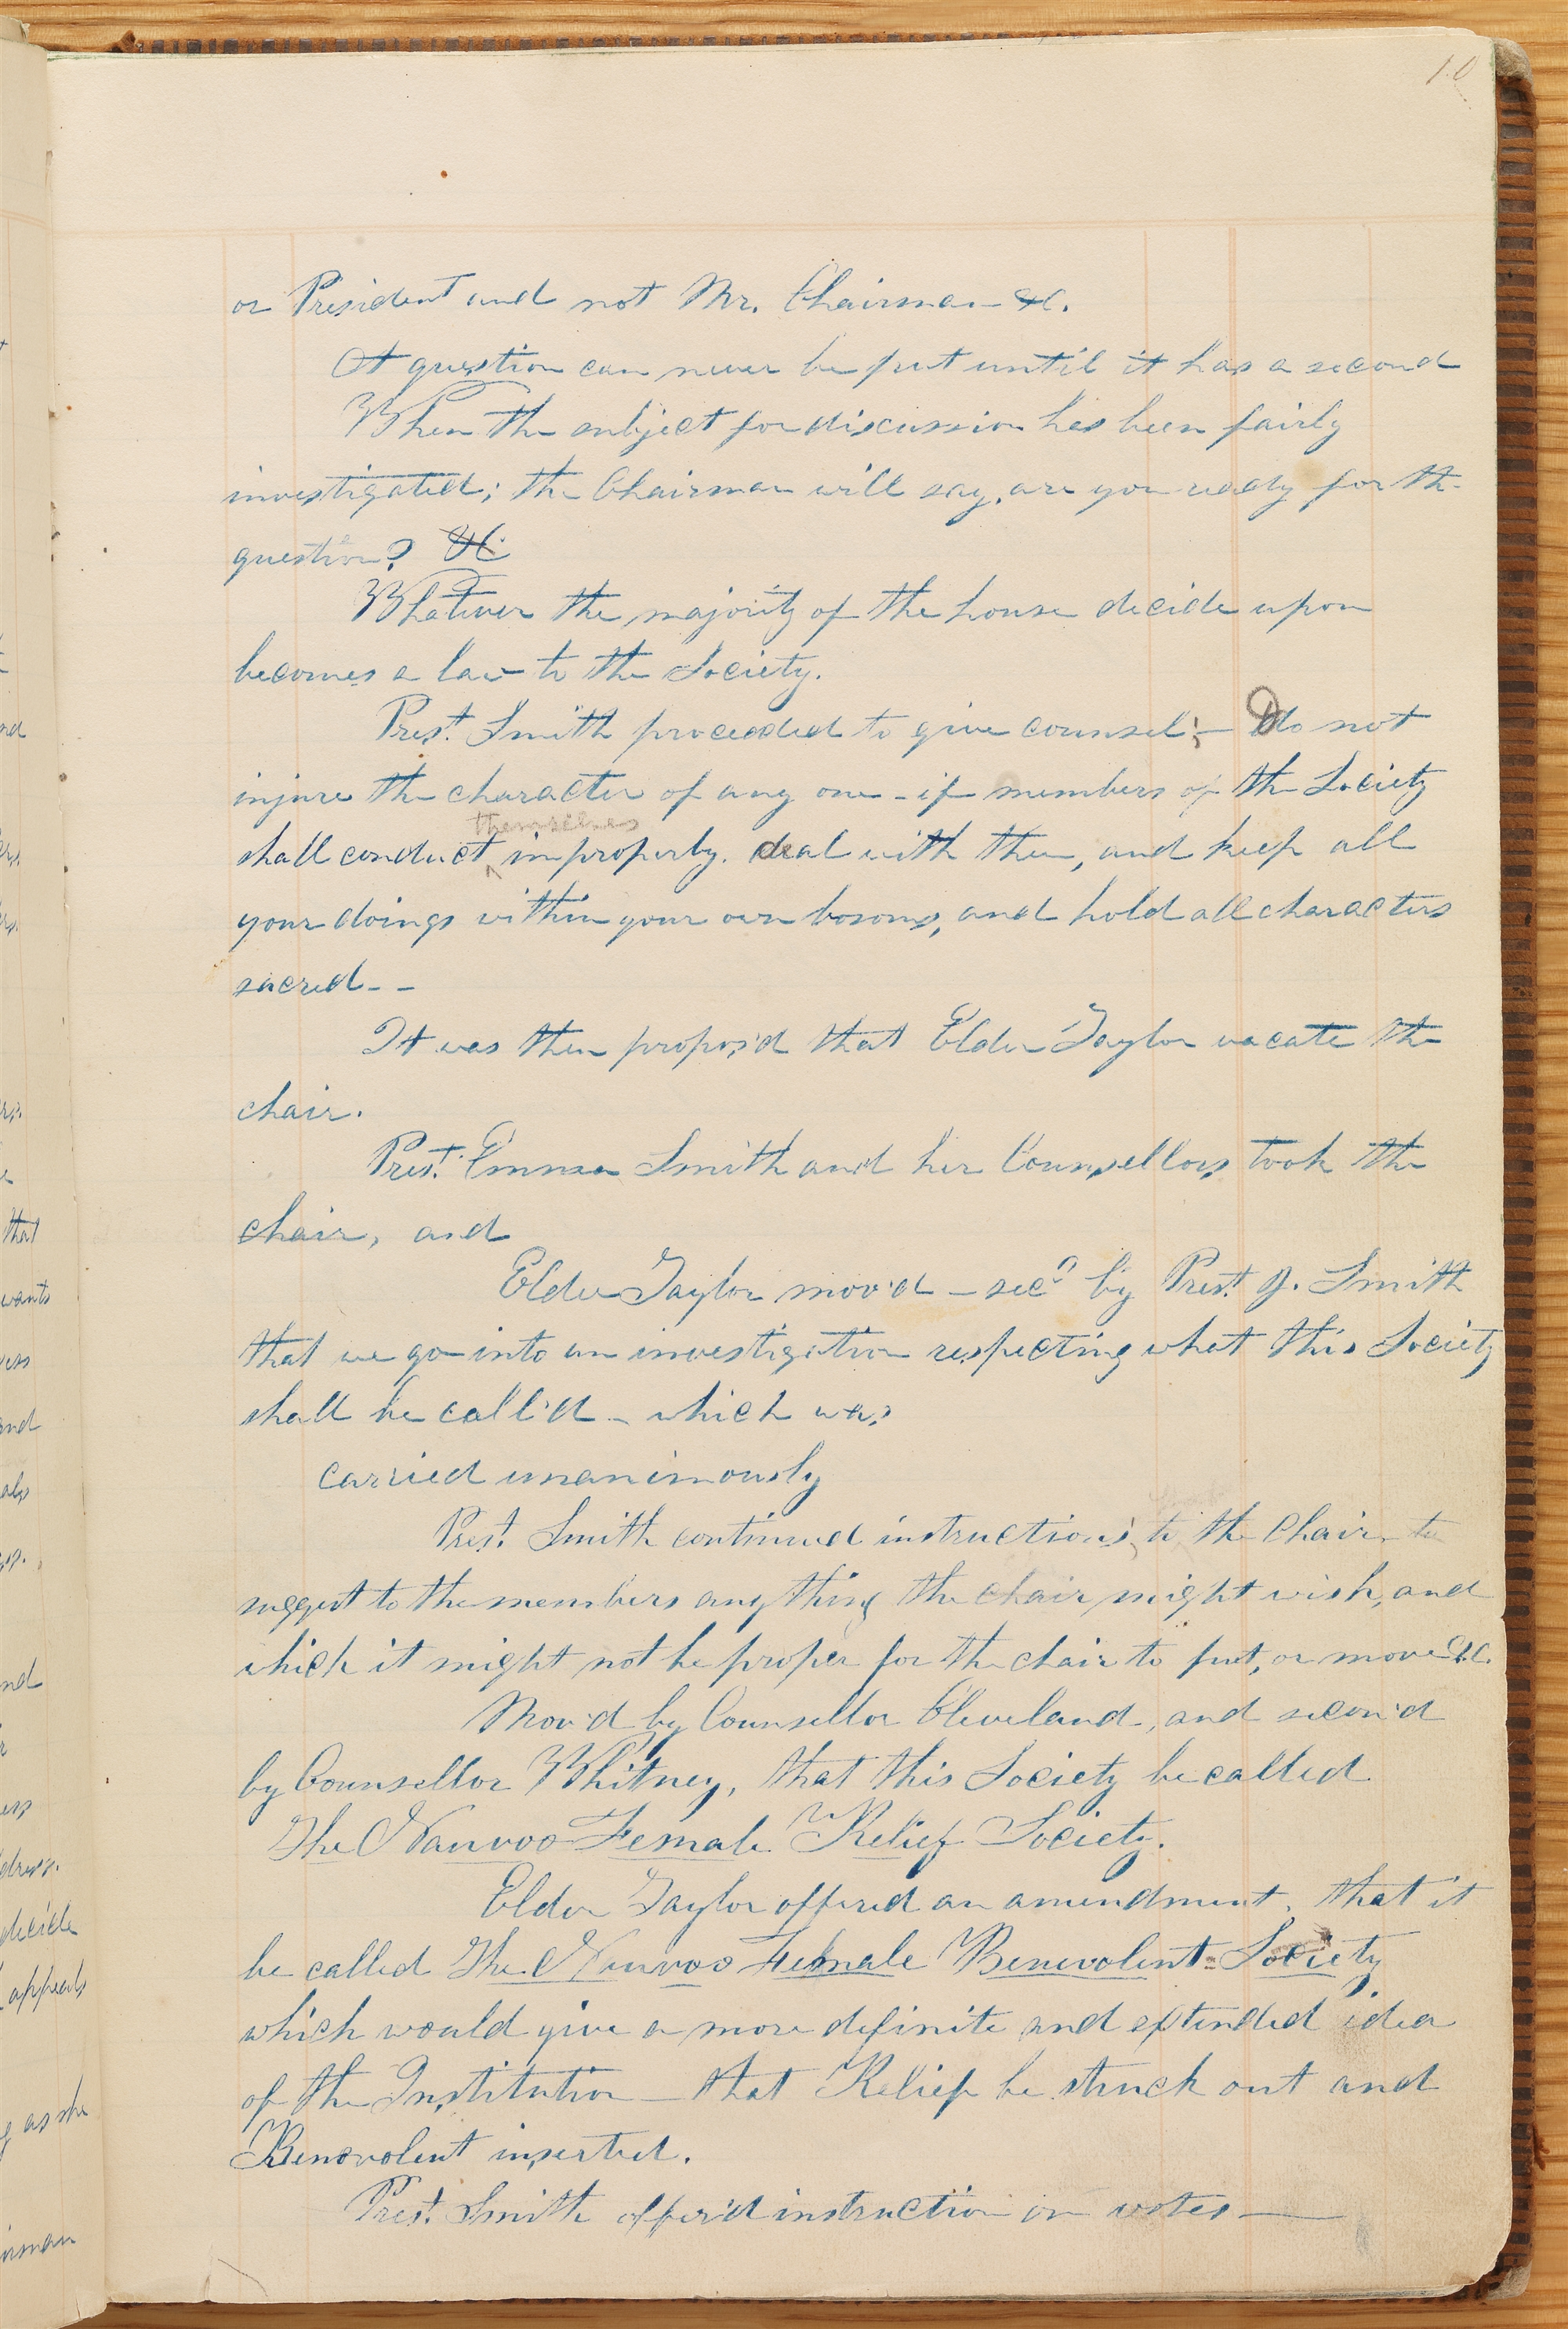 10
or President and not Mr. Chairman &c.
A question can never be put until it has a second
When the subject for discussion has been fairly
investigated; the Chairman will say, are you ready for the
question? &c
Whatever the majority of the house decide upon
becomes a law to the Society.
Prest. Smith proceeded to give counsel; — Do not
injure the character of any one - if members of the Society
themselves
shall conduct ^ improperly. deal with them, and keep all
your doings within your own bosoms, and hold all characters
sacred - -
It was then propos'd that Elder Taylor vacate the
chair.
Prest. Emma Smith and her Counsellors took the
chair, and
Elder Taylor mov'd - secd by Prest. J. Smith
that we go into an investigation respecting what this Society
shall be call'd - which was
carried unanimously
Prest. Smith continued instructions to the Chair to
suggest to the members anything the chair might wish, and
which it might not be proper for the chair to put, or move &c.
Mov'd by Counsellor Cleveland, and secon'd
by Counsellor Whitney, that this Society be called
The Nauvoo Female Relief Society.
Elder Taylor offered an amendment, that it
be called The Nauvoo Female Benevolent Society
which would give a more definite and extended idea
of the Institution - that Relief be struck out and
Benevolent inserted.
Prest. Smith offer'd instruction on votes —
nd
that
wants
and
nd
dress.
decide
appeals
as she